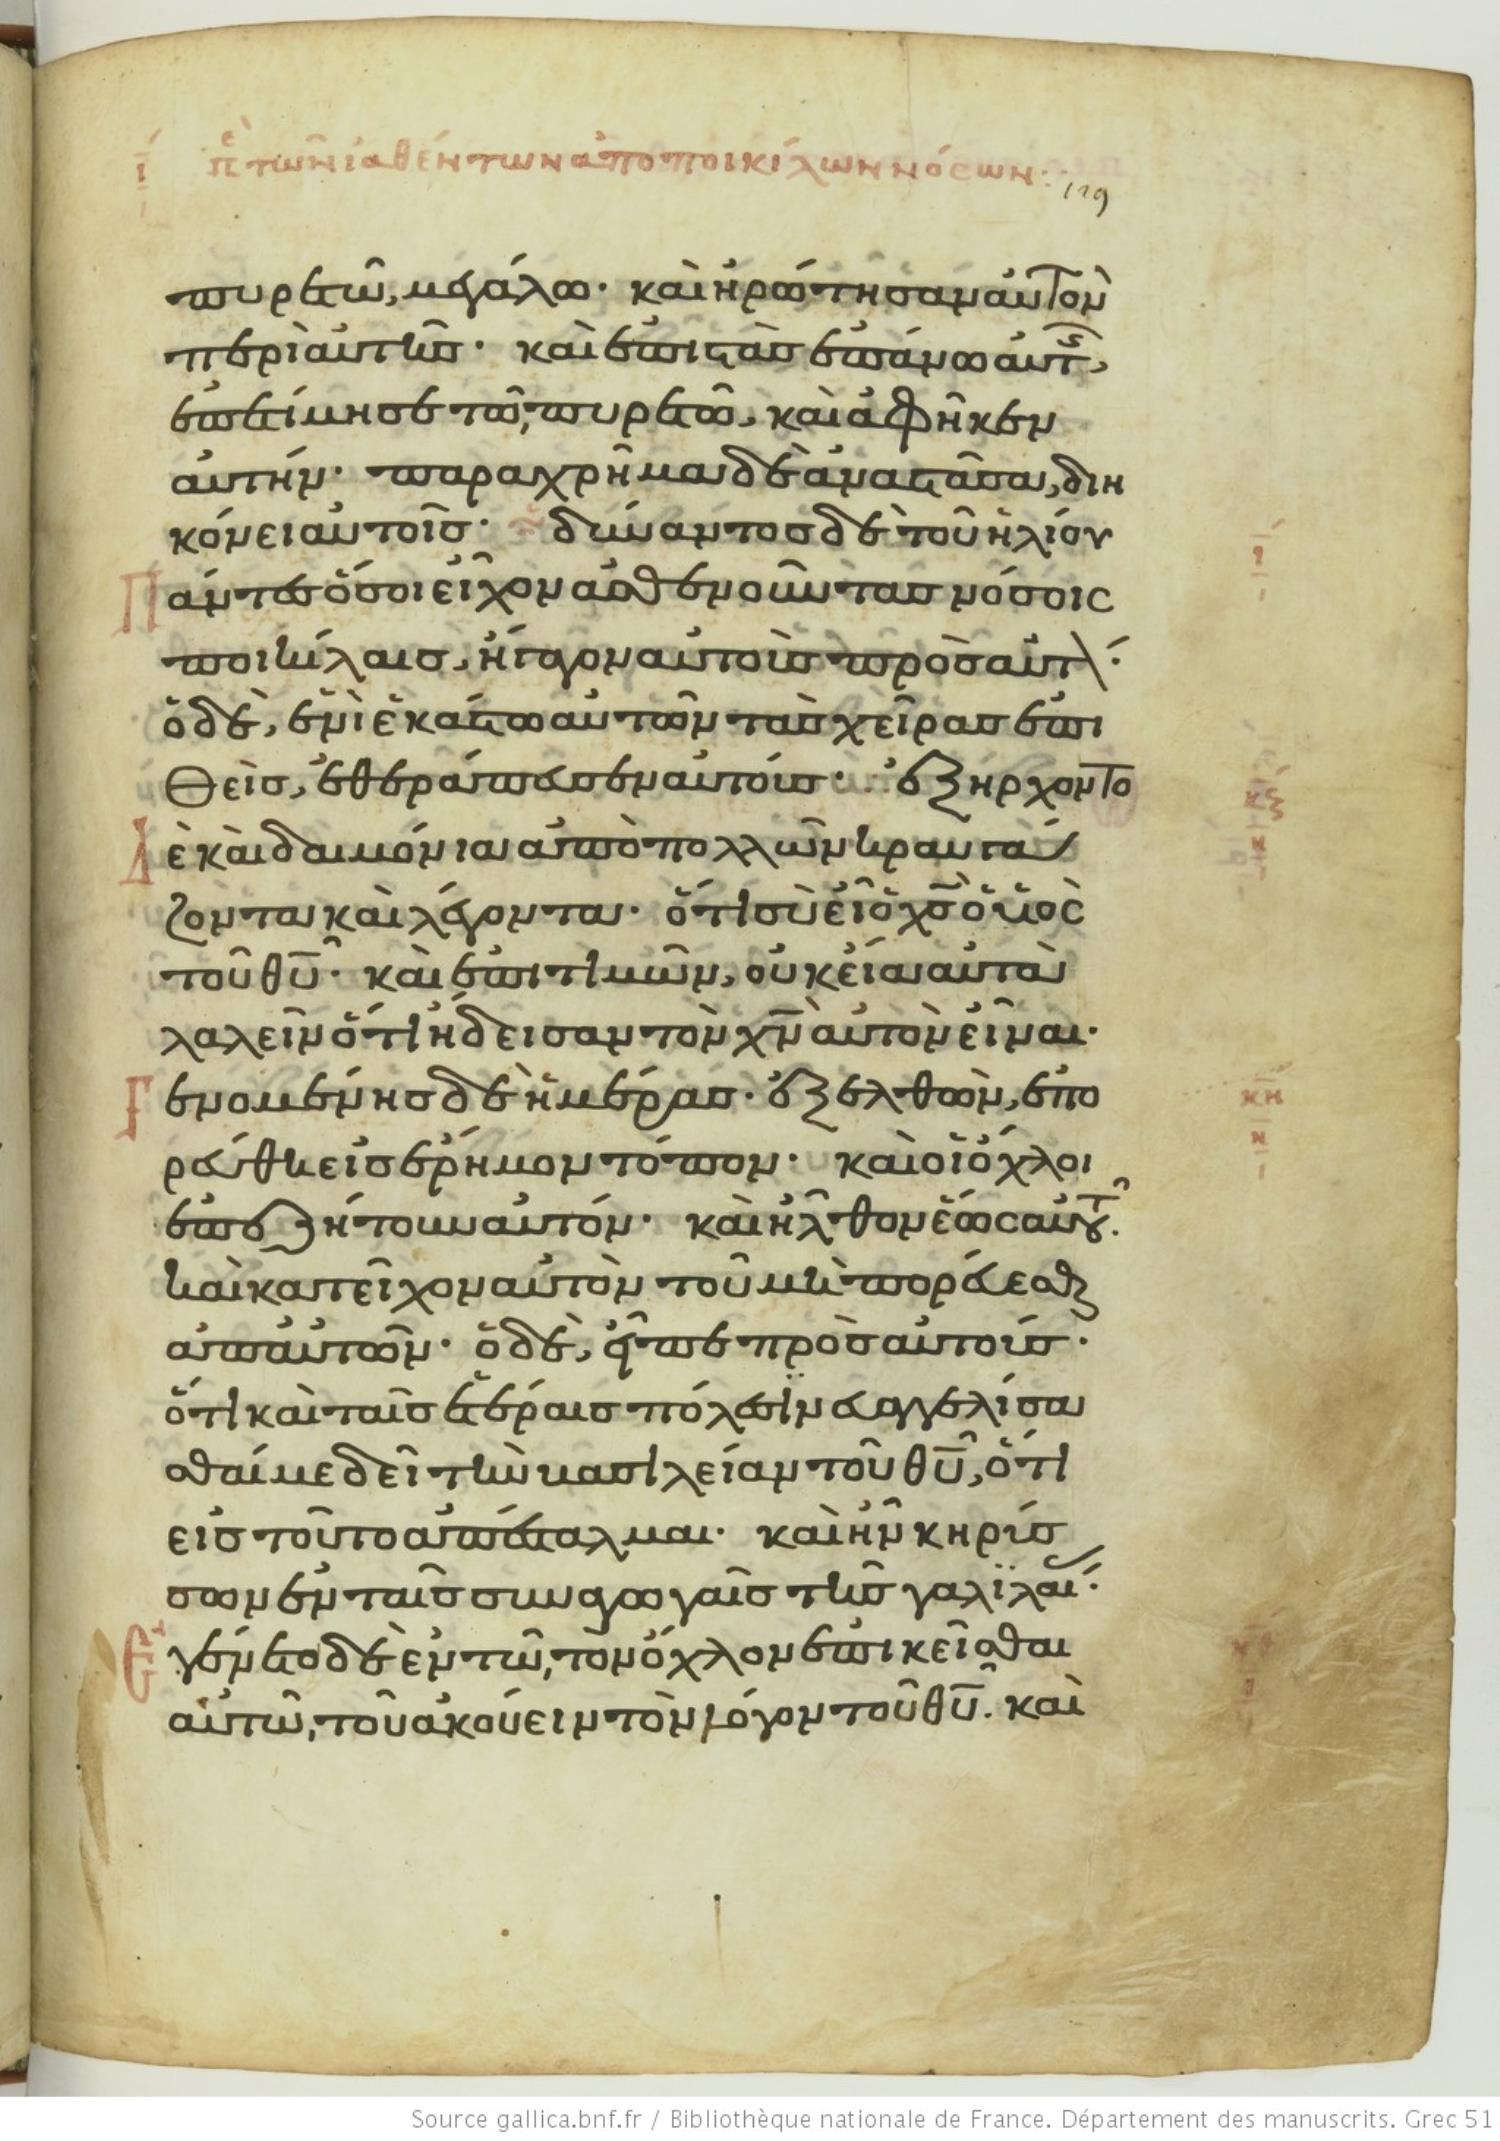 ι πε των ιαθέντων απο ποικίλων νόσων
119
πυρετῶ, μεγάλω· καὶ ἠρώτησαν αὐτὸν
περὶ αὐτῆς· καὶ ἐπιστὰς ἐπάνω αὐτῆς,
ἐπετίμησε τῶ, πυρετῶ, καὶ ἀφῆκεν
αὐτήν· παραχρῆμα δὲ ἀναστᾶσα, διη
κόνει αὐτοῖς· δύναντος δὲ τοῦ ἡλίου
Πάντες ὅσοι εἶχον ἀσθενοῦντας νόσοις
ποικίλαις, ἤγαγον αὐτοὺς πρὸς αὐτ·
ὁ δὲ, ἑνὶ ἑκάστω αὐτῶν τὰς χεῖρας ἐπι
θεὶς, ἐθεράπευσεν αὐτούς· ἐξήρχοντο
Δὲ καὶ δαιμόνια ἀπὸ πολλῶν κραυγά
ζοντα καὶ λέγοντα· ὅτι σὺ εἶ ὁ χς ὁ υἱὸς
τοῦ θυ· καὶ ἐπιτιμῶν, οὐκ εἴα αὐτὰ
λαλεῖν ὅτι ἤδεισαν τὸν χν αὐτὸν εἶναι·
Γενομένης δὲ ἡμέρας· ἐξελθὼν, ἐπο
ρεύθη εἰς ἔρημον τόπον· καὶ οἱ ὄχλοι
ἐπεζήτουν αὐτόν· καὶ ἦλθον ἕως αὐτοῦ.
καὶ κατεῖχον αὐτὸν τοῦ μὴ πορεύεσθαι
ἀπ αὐτῶν· ὁ δὲ, εἶπε πρὸς αὐτούς·
ὅτι καὶ ταῖς ἑτέραις πόλεσϊν εὐαγγελίσα
σθαί με δεῖ τὴν βασιλείαν τοῦ θυ, ὅτι
εἰς τοῦτο ἀπέσταλμαι· καὶ ἦν κηρύσ
σων ἐν ταῖς συναγωγαῖς τῆς γαλϊλαί·
Ἐγένετο δὲ ἐν τῶ, τὸν ὄχλον ἐπικεῖσθαι
αὐτῶ, τοῦ ἀκούειν τὸν λόγον τοῦ θυ. καὶ
ι
κξ
κη
Source gallica.bnf.fr / Bibliothèque nationale de France. Département des manuscrits. Grec 51